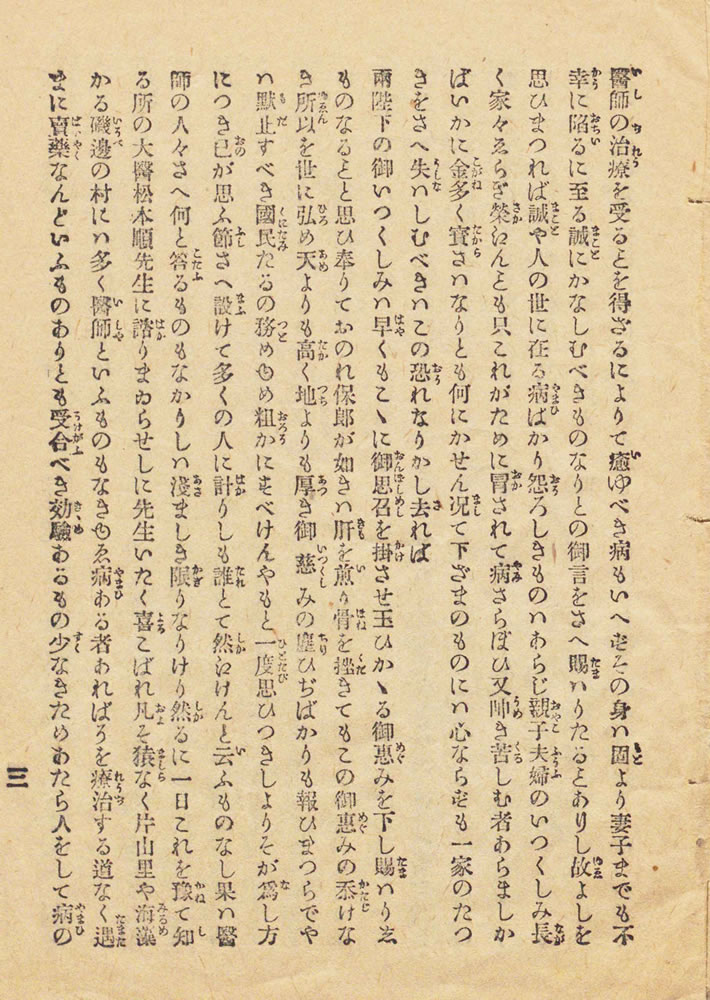 醫師の治療を受ると得ざるによりて癒ゆべき病もいへずその身ハ固より妻子までも不
幸に陷るに至る誠にかなしむべきものなりとの御言をさへ賜ハりたるとありし故よしを
思ひまつれば誠や人の世に在る病ばかり怨ろしきものハあらじ親子夫婦のいつくしみ長
く家々ゑらぎ榮けんとも只これがために冒されて病さらぼひ又呻き苦しむ者あらましか
ばいかに金多く寶さハなりとも何にかせん况て下ざまのものにハ心ならずも一家のたつ
きをさへ失ハしむべきハこの恐れなりかし去れば
兩陛下の御いつくしみハ早くもこゝに御思召を掛させ玉ひかゝる御惠みを下し賜ハりゑ
ものなるとと思ひ奉りておのれ保郎が如きハ肝を煎り骨を挫きてもこの御惠みの忝けな
き所以を世に弘め天よりも高く地よりも厚き御慈みの塵ひぢばかりも報ひまつらでや
ハ默止すべき國民たるの務めゆめ粗かにすべけんやもと一度思ひつきしよりそが爲し方
につき已が思ふ節さへ設けて多くの人に計りしも誰とて然けんと云ふものなし果ハ醫
師の人々さへ何と答るものもなかりしハ淺ましき限りなりけり然るに一日これを豫て知
る所の大醫松本順先生に諮りまゐらせしに先生いたく喜こばれ凡そ猿なく片山里や海藻
かる磯邊の村にハ多く醫師といふものもなきゆゑ病ある者あればとて療治する道なく遇
まに賣藥なんどいふものありとも受合べき効驗あるもの少なきためあたら人をして病の
三